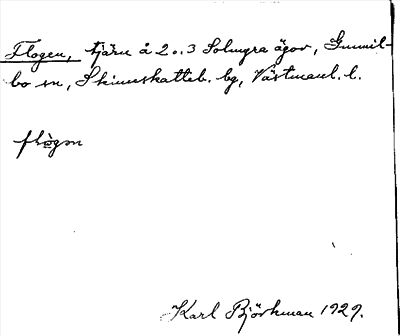 Flogen, tjärn å 2 o. 3 Solmyra ägor, Gunnil-
bo sn, Skinnskatteb. bg, Västmanl. l.
flògen
Karl Björkman 1929.